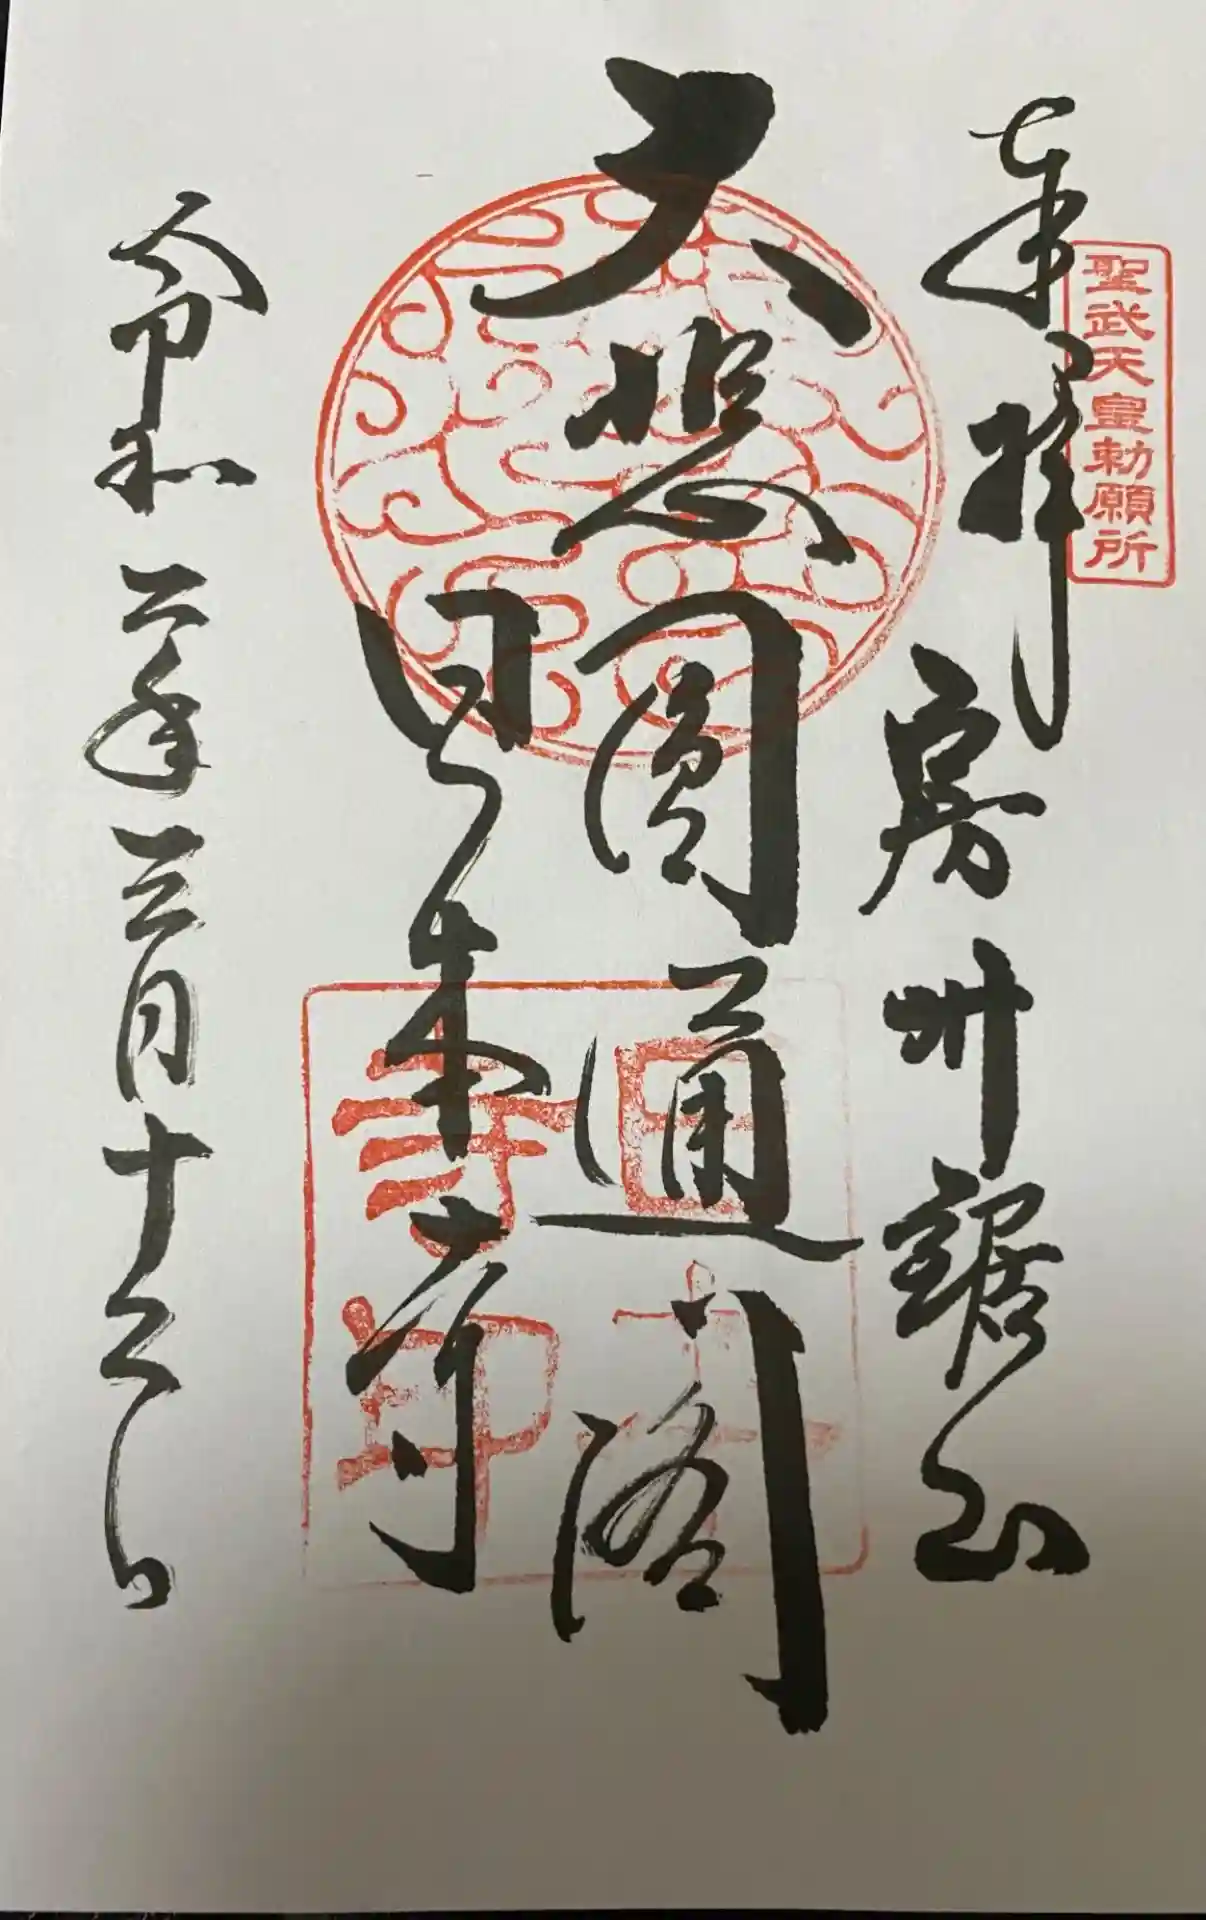 聖武天皇勅願所
奉拝
房州鋸山
大悲圓通閣
日本寺
令和二年三月十日
日本寺印